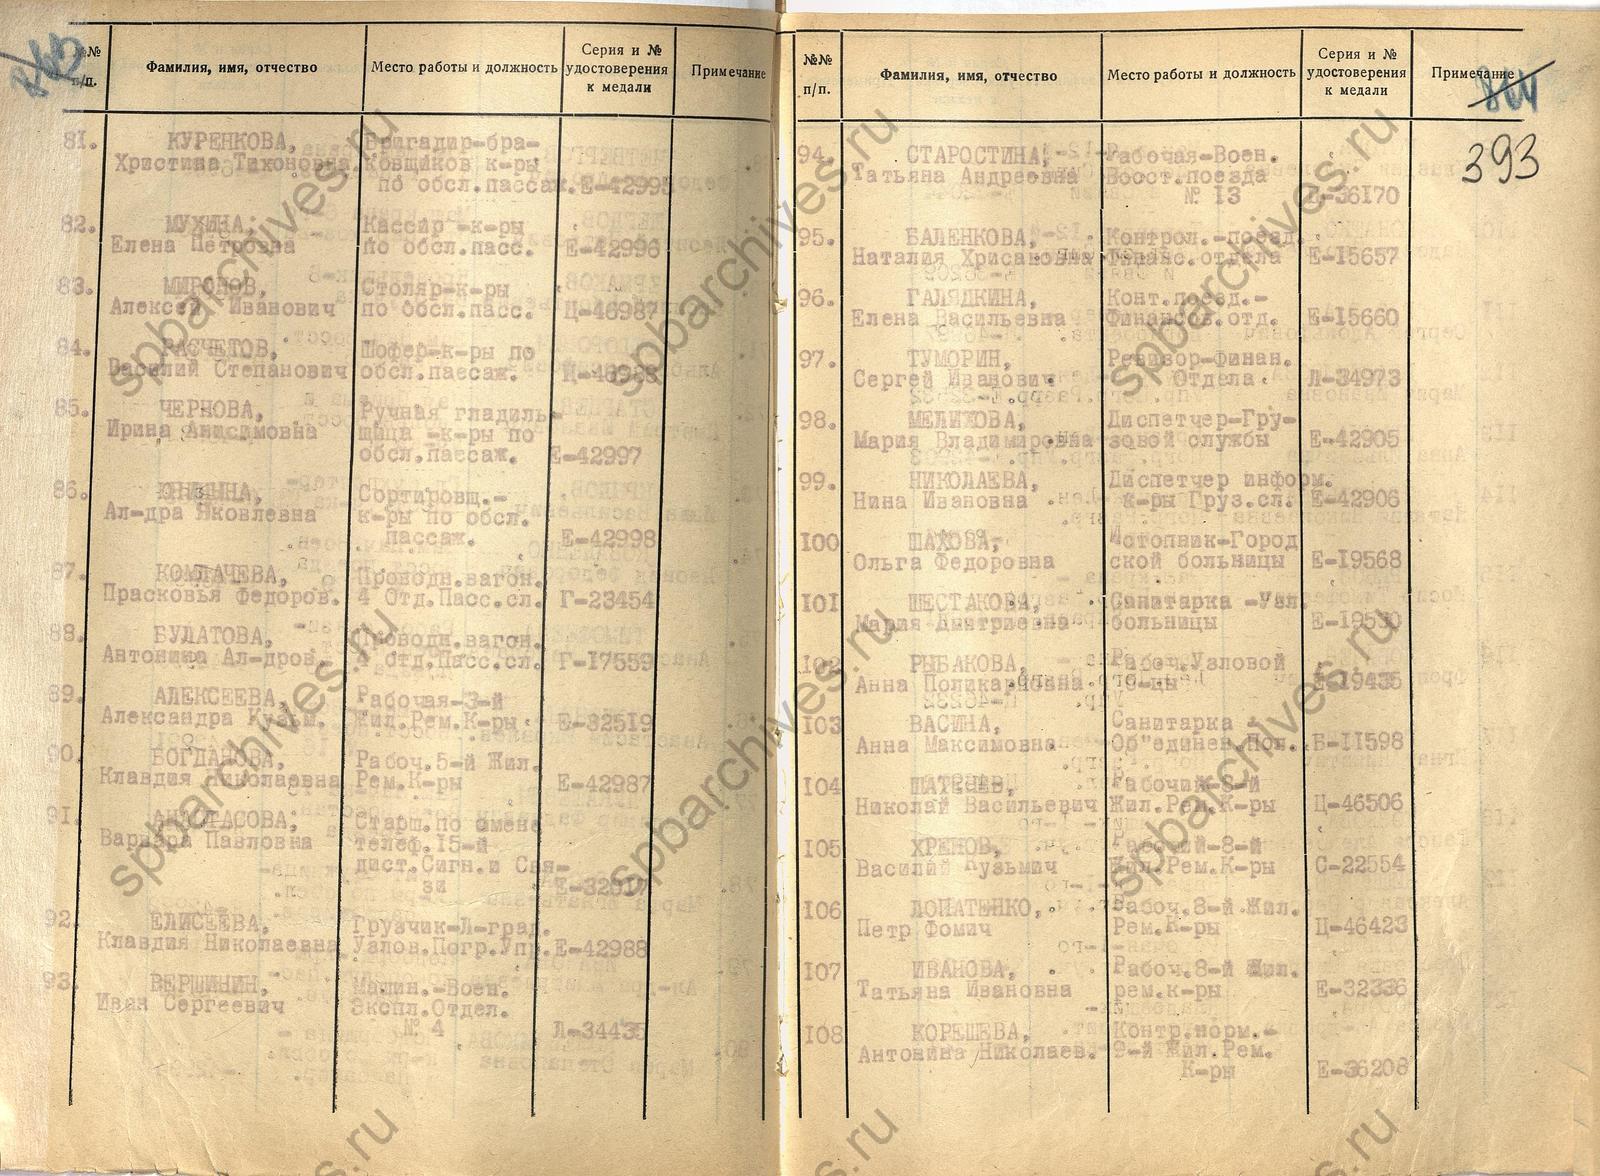 №№
п/п.
Фамилия, имя, отчество
Место работы и должность
Серия и №
удостоверения
к медали
Примечание
81. КУРЕНКОВА,
Христина Тихоновна
Бригадир-бра-
ковщиков к-ры
по обсл.пассаж.
Е-42995
82. МУХИНА,
Елена Петровна
Кассир -к-ры
по обсл.пасс.
Е-42996
83. МИРОНОВ,
Алексей Иванович
Столяр-к-ры
по обсл.пасс.
Ц-46987
84. РАСЧЕТОВ,
Василий Степанович
Шофер-к-ры по
обсл.пассаж.
Ц-46988
85. ЧЕРНОВА,
Ирина Анисимовна
Ручная гладиль-
щица -к-ры по
обсл.пассаж.
Е-42997
86.
Ал-дра Яковлевна
Сортировщ.-
к-ры по обсл.
пассаж.
Е-42998
87. КОМПАЧЕВА,
Прасковья Федоров.
Проводн.вагон.
4 Отд.Пасс.сл.
Г-23454
88. БУЛАТОВА,
Антонина Ал-дров.
Проводн.вагон.
4 Отд.Пасс.сл.
Г-17559
89. АЛЕКСЕЕВА,
Александра Кузьм.
Рабочая-3-й
Жил.Рем.К-ры
Е-32519
90. БОГДАНОВА,
Клавдия Николаевна
Рабоч.5-й Жил.
Рем.К-ры
Е-42987
91. АНАСТАСОВА,
Варвара Павловна
Старш.по смене
телеф.15-й
дист.Сигн.и Свя-
зи
Е-32017
92. ЕЛИСЕЕВА,
Клавдия Николаевна
Грузчик-Л-град.
Узлов.Погр.Упр.
Е-42988
93. ВЕРШИНИН,
Иван Сергеевич
Машин.-Воен.
Экспл.Отдел.
№ 4
Л-34435
№№
п/п.
Фамилия, имя, отчество
Место работы и должность
Серия и №
удостоверения
к медали
Примечание
393
94. СТАРОСТИНА,
Татьяна Андреевна
Рабочая-Воен.
Восст.поезда
№ 13
Ц-36170
95. БАЛЕНКОВА,
Наталия Хрисановна
Контрол.-поезд.
Финанс.отдела
Е-15657
96. ГАЛЯДКИНА,
Елена Васильевна
Конт.поезд.-
Финансов.отд.
Е-15660
97. ТУМОРИН,
Сергей Иванович
Ревизор-финан.
Отдела
Л-34973
98. МЕЛИХОВА,
Мария Владимировна
Диспетчер-Гру-
зовой службы
Е-42905
99. НИКОЛАЕВА,
Нина Ивановна
Диспетчер информ.
к-ры Груз.сл.
Е-42906
100 ШАХОВА,
Ольга Федоровна
Истопник-Город
ской больницы
Е-19568
101 ШЕСТАКОВА,
Мария Дмитриевна
Санитарка -Узл.
больницы
Е-19530
102 РЫБАКОВА,
Анна Поликарповна
Рабоч.Узловой
б-цы
Е-19435
103 ВАСИНА,
Анна Максимовна
Санитарка -
Об"единен.Пол.
Б-11598
104 ШАТЕНЕВ,
Николай Васильевич
Рабочий-8-й
Жил.Рем.К-ры
Ц-46506
105 ХРЕНОВ,
Василий Кузьмич
Рабочий-8-й
Жил.Рем.К-ры
С-22554
106 ЛОПАТЕНКО,
Петр Фомич
Рабоч.8-й Жил.
Рем.К-ры
Ц-46423
107 ИВАНОВА,
Татьяна Ивановна
Рабоч.8-й Жил.
рем.к-ры
Е-32336
108 КОРЕШЕВА,
Антонина Николаев.
Контр.норм.-
9-й Жил.Рем.
К-ры
Е-36208
spbarchives.ru
spbarchives.ru
spbarchives.ru
spbarchives.ru
spbarchives.ru
spbarchives.ru
spbarchives.ru
spbarchives.ru